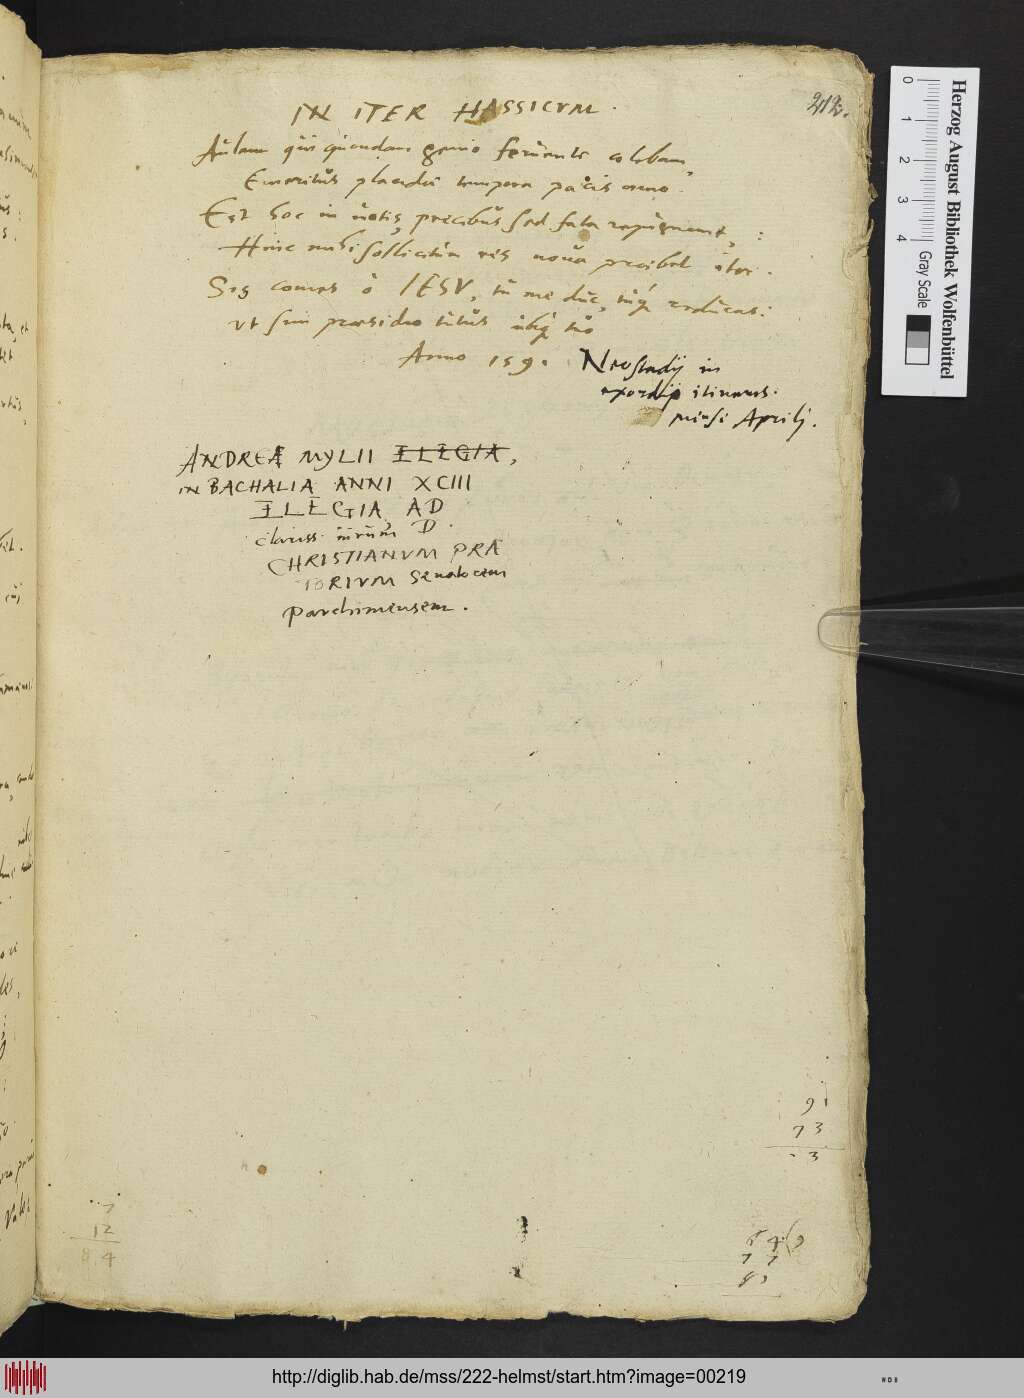 212.
IN ITER HASSICVM.
Aulam qui quondam genio feruente colebam,
Emeritus placidae tempora pacis amo.
Est hoc in uotis, precibus sed fata repugnant,:
Hinc mihi sollicitum vis noua praebet iter.
Sis comes ô IESV, tu me duc, tuq́ reducas:
vt sim praesidio tutus ubiq́ tuo
Anno 159. Neostadij in
exordijs itineris.
mense Aprilj.
ANDREÆ MYLII ELEGIA,
IN BACHALIA ANNI XCIII
ELEGIA AD
clariss. uirum D.
CHRISTIANVM PRÆ
TORIVM Senatorem
Parchimensem.
91
73
3
7
12
84
Herzog August Bibliothek Wolfenbüttel
0 1 2 3 4
Gray Scale
http://diglib.hab.de/mss/222-helmst/start.htm?image=00219